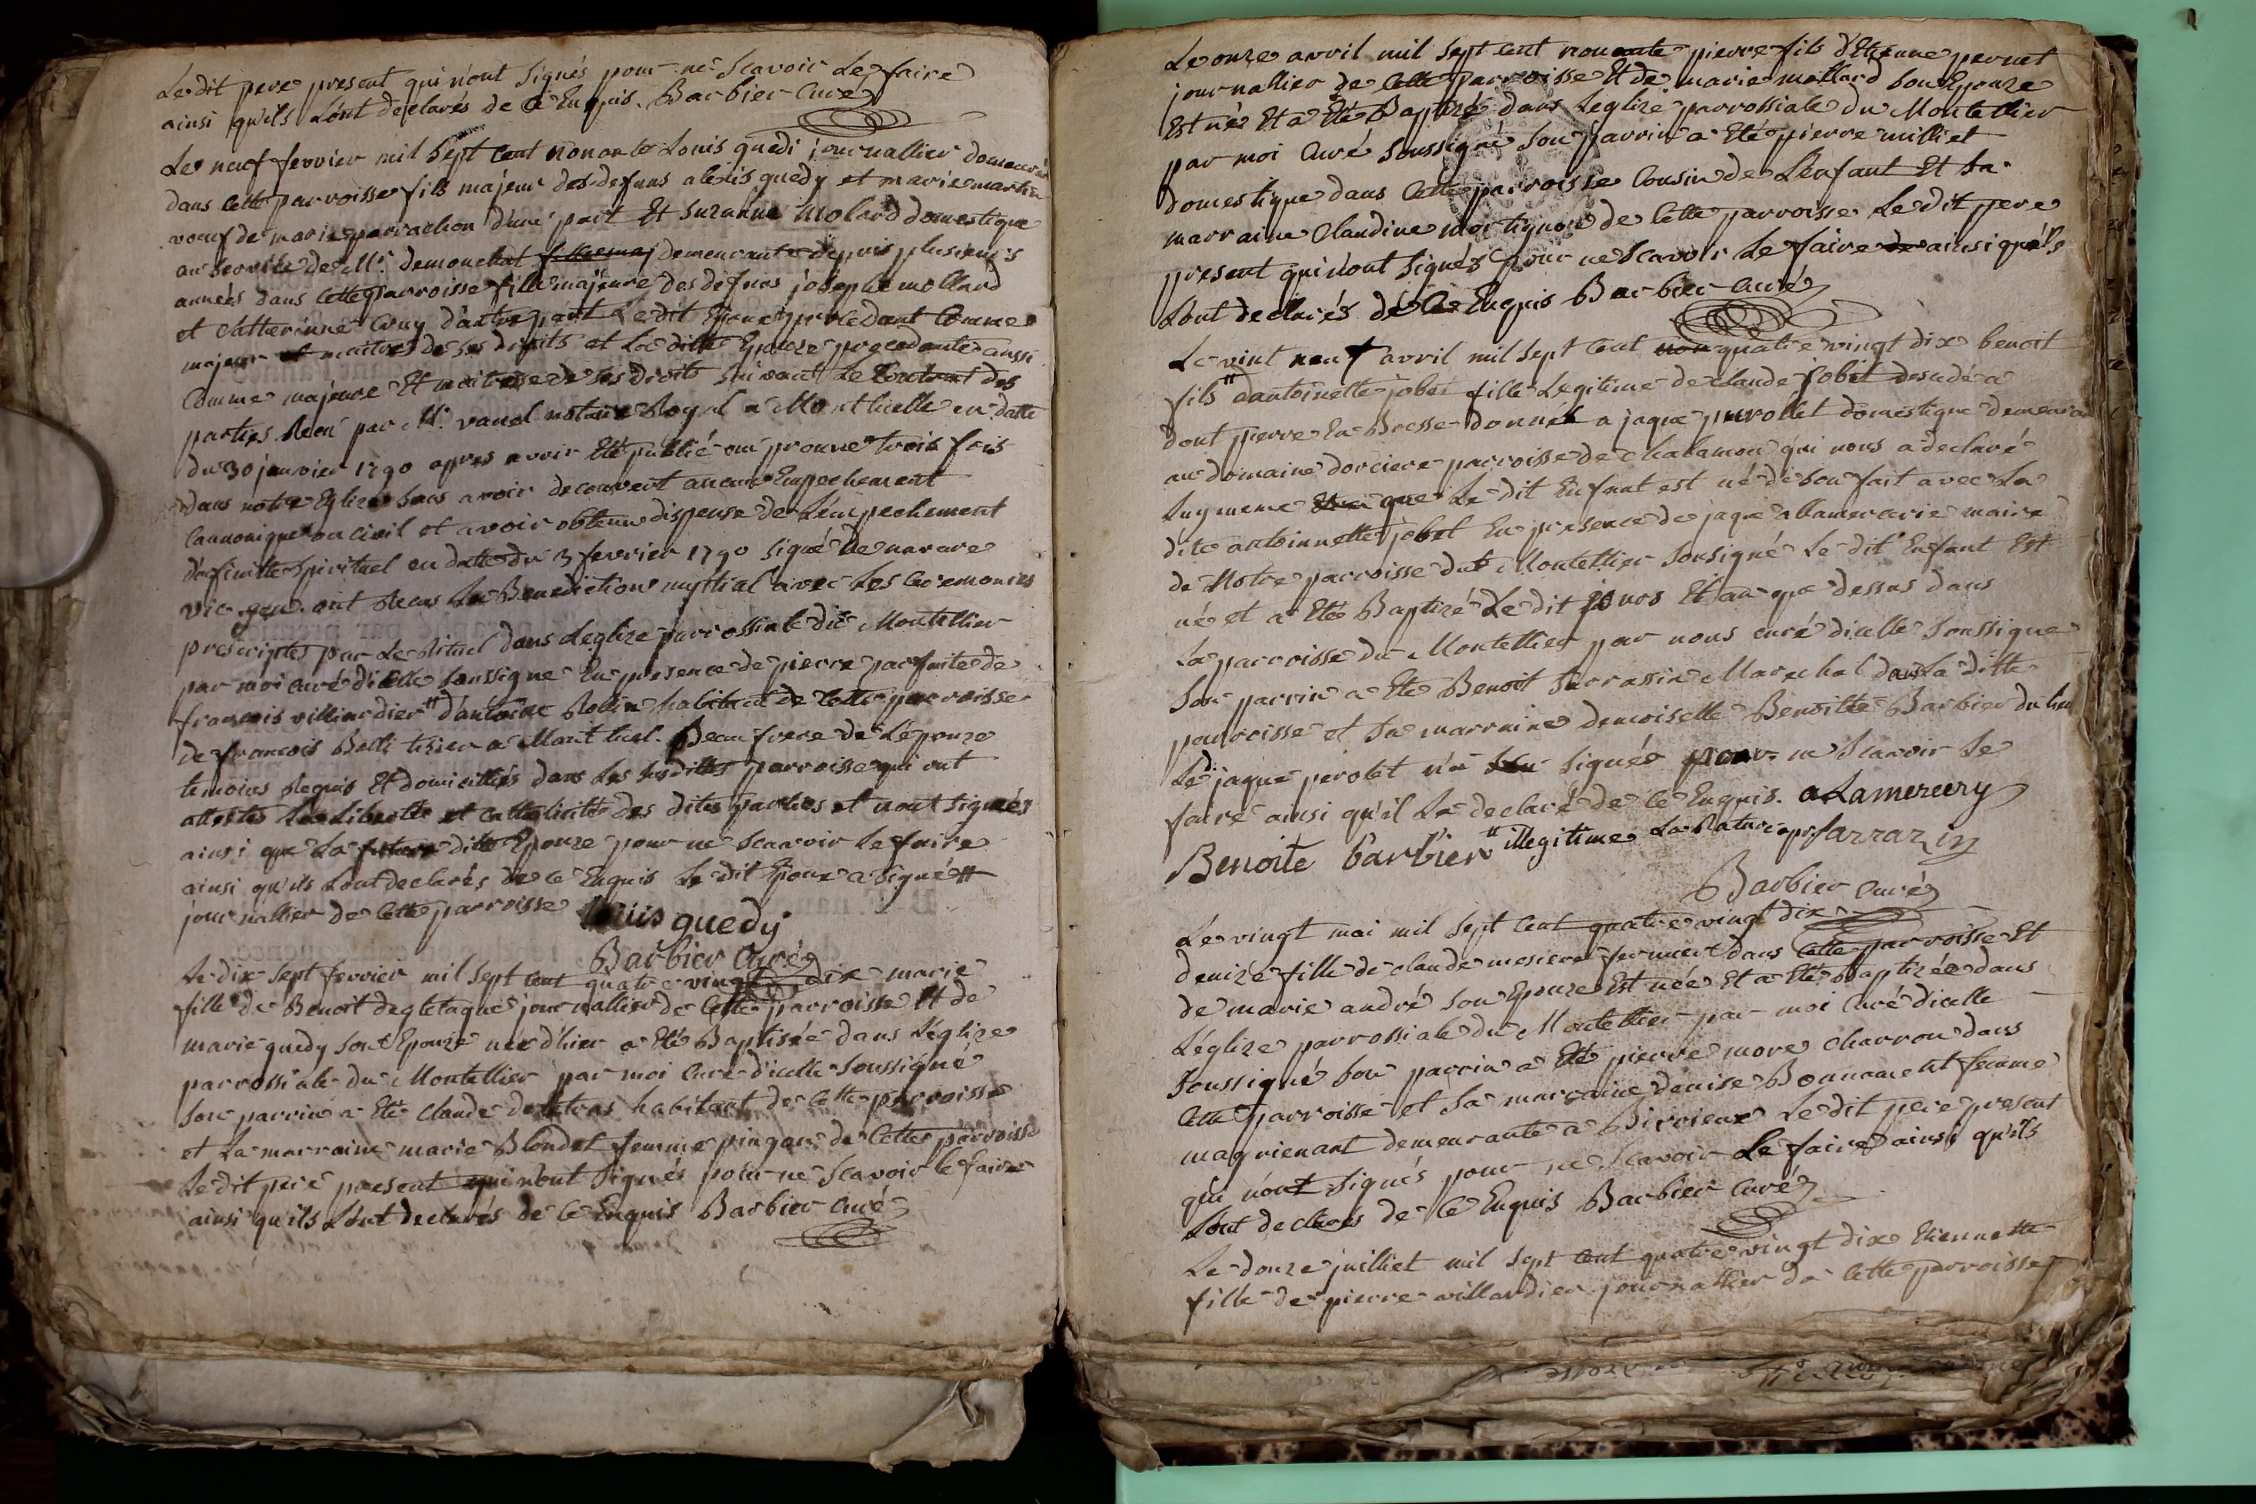 Le dit pere present qui n'ont signés pour ne scavoir le faire
ainsi qu'ils L'ont declarés de ce Enquis. Barbier curé
Le neuf fevrier mil sept cent nonante Louis quedi journallier demeurant
dans cette parroisse fils majeur des defuns alexis quedy et marie martin
voeuf de marie parrachon d'une part Et suzanne molard domestique
au service de Mr. demonchat demeurante depuis plusieurs
années dans cette parroisse fille majeure des defuns joseph mollard
et Catherinne Cruy d'autre part Le dit Epoux procedant Comme
majeur et maitre de ses droits et La ditte Epouze procedante aussi
Comme majeure Et maitresse de ses droits suivant Le Contrat des
parties Recu par Mr. vanel notaire Royal a Montluelle en datte
du 30 janvier 1790 apres avoir Eté publié au prosne trois fois
dans notre Eglize sans avoir decouvert aucun Empechement
Cannonique ou civil et avoir obtenu dispense de L'empechement
d'afinité spirituel en datte du 3 fevrier 1790 signé de navarre
vic. gen. ont Recus La Benediction nuptial avec Les Ceremonies
prescriptes par Le Rituel dans Leglize parrossiale du Montellier
par moi curé dicelle soussigne En presence de pierre parfaite de
francois villiardier # d'antoine Robin habitant de Cette parroisse
de francois Belli tixier a Mont luel. Beau frere de L'épouze
temoins Requis Et domiciliés dans Les susdittes parroisse qui ont
attestés La Liberté et Catholicité des dites parties et n'ont signés
ainsi que La future ditte Epouze pour ne scavoir Le faire
ainsi qu'ils L'ont declarés de ce Enquis Le dit Epoux a signé #
journallier de Cette parroisse Louis quedy
Barbier Curé
Le dix sept fevrier mil sept cent quatre vingt dix marie
fille de Benoit degletagne journallier de Cette parroisse Et de
marie quedy son Epouze née d'hier a Eté Baptisée dans L'églize
parrossiale du Montellier par moi Curé d'icelle soussigne
son parrin a Eté Claude deletras habitant de Cette parroisse
et La marraine marie Blondet femme pingon de Cette parroisse
Le dit pere present qui n'ont signés pour ne scavoir le faire
ainsi qu'ils L'ont declarés de Ce Enquis Barbier Curé
Le onze avril mil sept cent nonante pierre fils d'Etienne pernet
journallier de Cette parroisse Et de marie mollard son Epouze
Est né Et a Eté Baptizé dans Leglize parrossiale du Montellier
par moi Curé soussigné son parrin a Eté pierre milliet
domestique dans Cette parroisse Cousin de L'enfant Et sa
marraine Claudine mortignon de Cette parroisse Le dit pere
present qui n'ont signés pour ne scavoir Le faire de ainsi qu'ils
L'ont declarés de Ce Enquis Barbier Curé
Le vint neuf avril mil sept Cent non quatre vingt dix benoit
fils # dantoinette jobet fille Legitime de Claude jobet
dont pierre En Bresse donnée a jaque perollet domestique demeurant
au domaine dorciere parroisse de Chalamon qui nous a declaré
Luy meme que Le dit Enfant est né de son fait avec La
dite antoinnette jobet En presence de jaque allamercerie maire
de Notre parroisse du Montellier sousigné Le dit Enfant Est
né et a Eté Baptizé Le dit jour Et an que dessus dans
La parroisse du Montellier par nous curé dicelle soussigne
son parrin a Eté Benoit sarrasin Marechal dans La ditte
parroisse et sa marraine demoiselle Benoitte Barbier du lieu
Le jaque perolet n'a signés pour ne scavoir Le
faire ainsi qu'il La declaré de Ce Enquis. aLamercery
Benoite barbier # illegitime La Rature apr. sarrazin
Barbier Curé
Le vingt mai mil sept Cent quatre vingt dix
denize fille de Claude mesiere fermier dans Cette parroisse Et
de marie andré son Epouze Est née Et a Eté Baptizée dans
L'églize parrossiale du Montellier par moi Curé dicelle
soussigné son parrin a Eté pierre more Charron dans
Cette parroisse et sa marraine denise Bonnament femme
magnienant demeurante a Birrieux Le dit pere present
qui n'ont signés pour ne scavoir Le faire ainsi qu'ils
L'ont declarés de Ce Enquis Barbier Curé
Le douze juilliet mil sept Cent quatre vingt dix Etiennette
fille de pierre villardier journallier de Cette parroisse